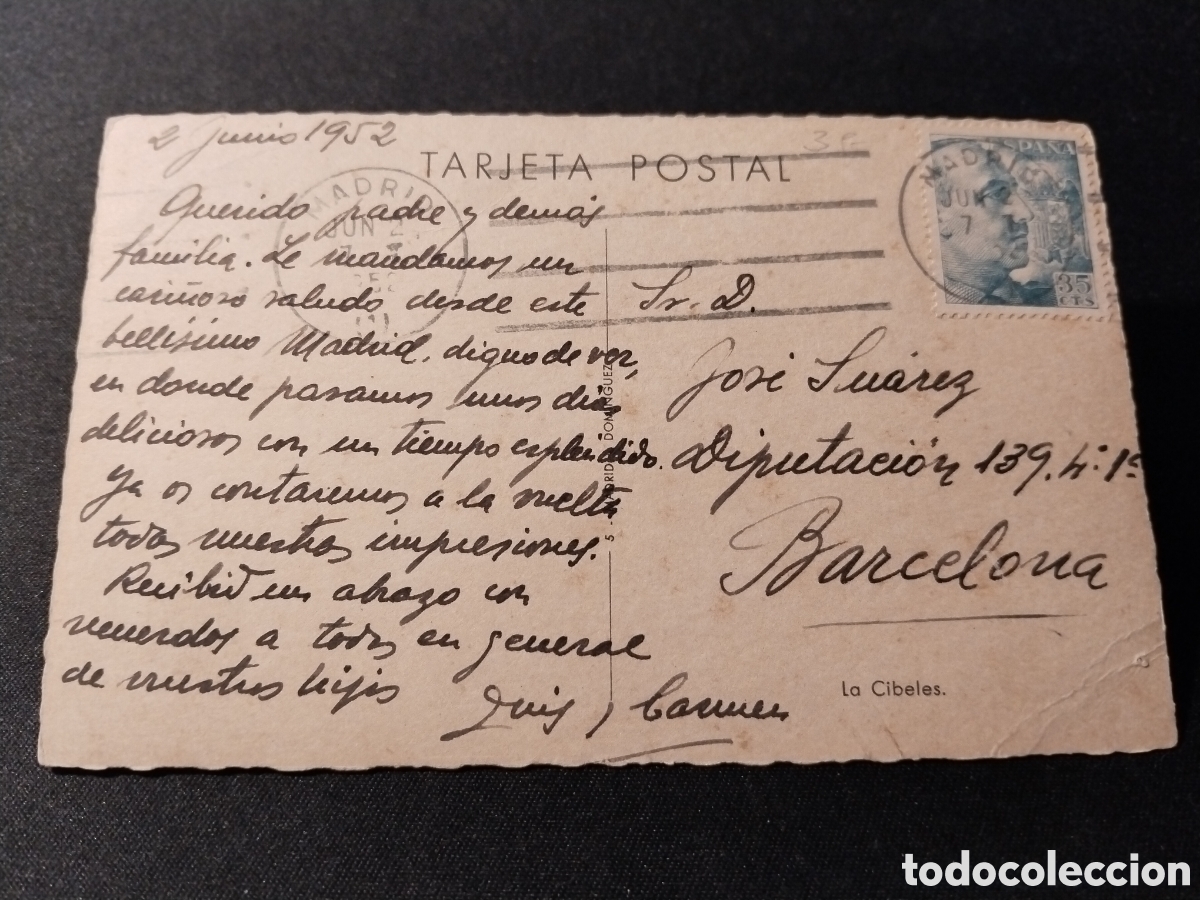 2 Junio 1952
TARJETA POSTAL
Querido padre y demás
familia. Le mandamos un
cariñoso saludo desde este
bellísimo Madrid, digno de ver,
en donde pasamos unos días
deliciosos con un tiempo esplendido.
Ya os contaremos a la vuelta
todas nuestras impresiones.
Recibid un abrazo con
recuerdos a todos en general
de vuestros hijos
Luis y Carmen
MADRID
JUN 2
ESPAÑA
35
CTS
MADRID
JUN
7
Sr. D.
José Suárez
Diputación 139, 4º 1ª
Barcelona
La Cibeles.
5 - MADRID - DOMINGUEZ
todocoleccion